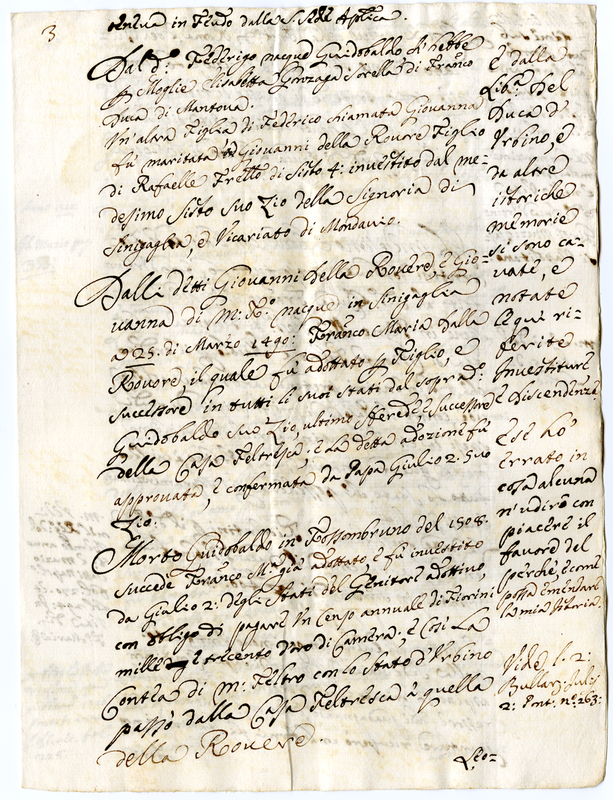 3
teneva in Feudo dalla S. Sede Aplica.
Dal do. Federigo nacque Guidobaldo ch'hebbe
p Moglie Elisabetta Gonzaga Sorella di Franco
Duca di Mantova.
Un'altra Figlia di Federico chiamata Giovanna
fù maritata à Giovanni della Rovere Figlio
di Rafaelle Frello di Sisto 4: investito dal me-
desimo Sisto suo Zio della Signoria di
Sinigaglia, e Vicariato di Mondavio.
Dalli detti Giovanni della Rovere, e Gio-
vanna di M: Fo. nacque in Sinigaglia
a' 25. di Marzo 1490: Franco Maria dalla
Rovere, il quale fù adottato p Figlio, e
successore in tutti li suoi stati dal soprado:
Guidobaldo suo Zio, ultimo Herede e Successore
della Casa Feltresca, e la detta adozione fù
approvata, e confermata da Papa Giulio 2: suo
Zio.
Morto Guidobaldo in Fossombruno del 1508.
succede Franco Ma. già adottato, e fù investito
da Giulio 2: degli Stati del Genitore adottivo,
con obligo di pagare un censo annuale di Fiorini
mille e trecento di Camera; e così La
Contea di M: Feltro con lo Stato d'Urbino
passò dalla Casa Feltresca a quella
della Rovere.
è dalla
Lib.a del
Duca d'
Urbino, e
da altre
istoriche
memorie
si sono ca-
vate, e
notate
le qui ri-
ferite
Investiture
e Discendenza
e se hò
errato in
cosa alcuna
n'udirò con
piacere il
favore del
perche come
possa emendare
la mia Istoria.
Vide l. 2:
Bullar: Julii
2: Pont. no. 263: